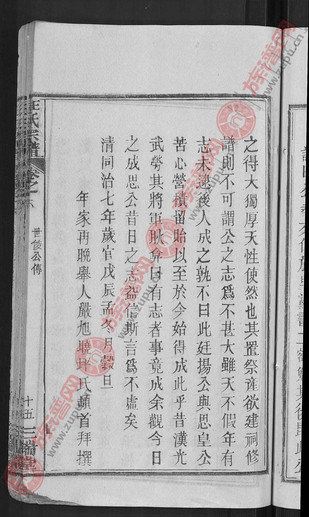 之得大獨厚天性使然也其置祭產欲建祠修
譜則不可謂公之志爲不甚大雖天不假年有
志未逮後人成之孰不曰此廷揚公與思皇公
苦心營積留貽以至於今始得成此乎昔漢光
武勞其將軍耿弇曰有志者事竟成余觀今日
之成思公昔日之志益信斯言爲不虛矣
清同治七年歲官戊辰孟冬月穀旦
年家再晚舉人嚴旭 氏頓首拜撰
汪氏宗譜
卷之
世俊公傳
十五
三瑞堂
族譜网
www.zupu.cn